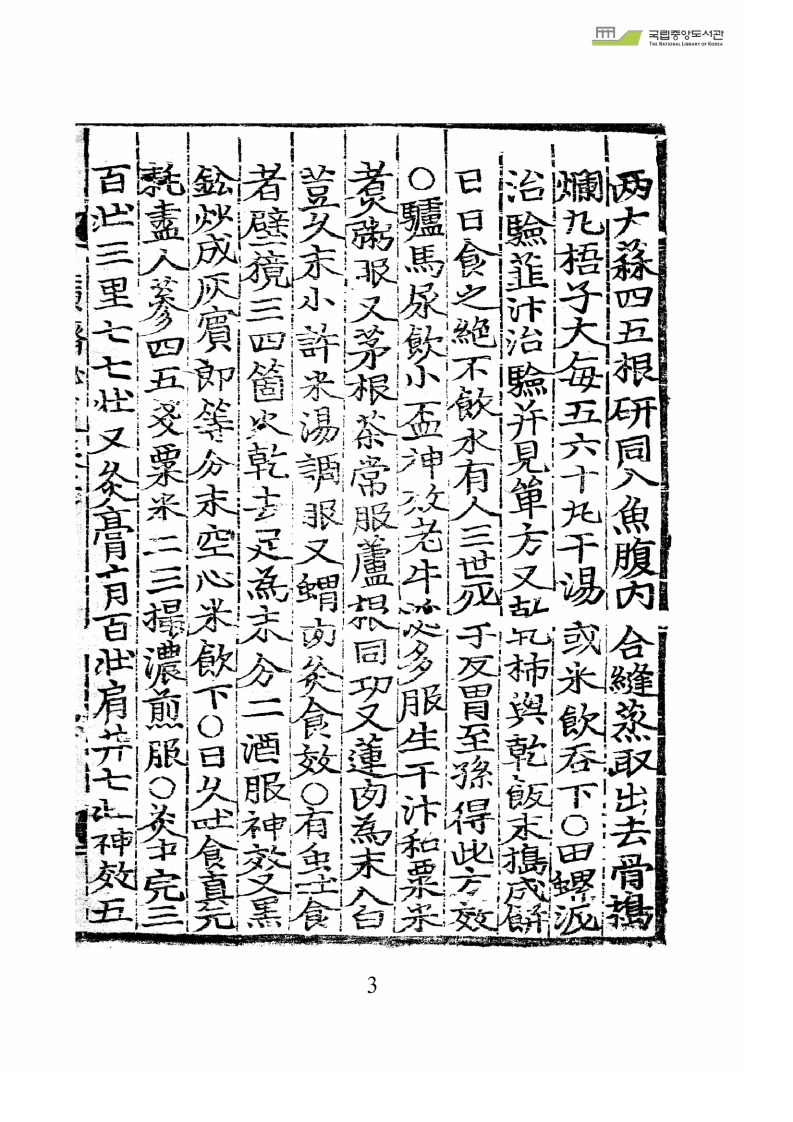 국립중앙도서관
THE NATIONAL LIBRARY OF KOREA
两大蒜四五根研同入魚腹内合縫蒸取出去骨搗
爛丸梧子大每五六十丸干湯或米飲吞下○田螺泥
治驗韮汁治驗并見單方又乾柿與乾飯末搗成餅
日日食之絶不飲水有人三世死于反胃至孫得此方效
○驢馬尿飲小盃神效老牛必多服生干汁和粟米
煮粥服又茅根茶常服蘆根同功又蓮肉為末入白
荳久末小許米湯調服又蝟肉炙食效○有虫主食
者壁鏡三四箇火乾去足為末分二酒服神效又黑
鈆炒成灰賓郎等分末空心米飲下○日久吐食真元
耗盡人蔘四五戔粟米二三撮濃煎服○灸中完三
百壯三里七七壯又灸膏肓百壯肩井七壯神效五
3